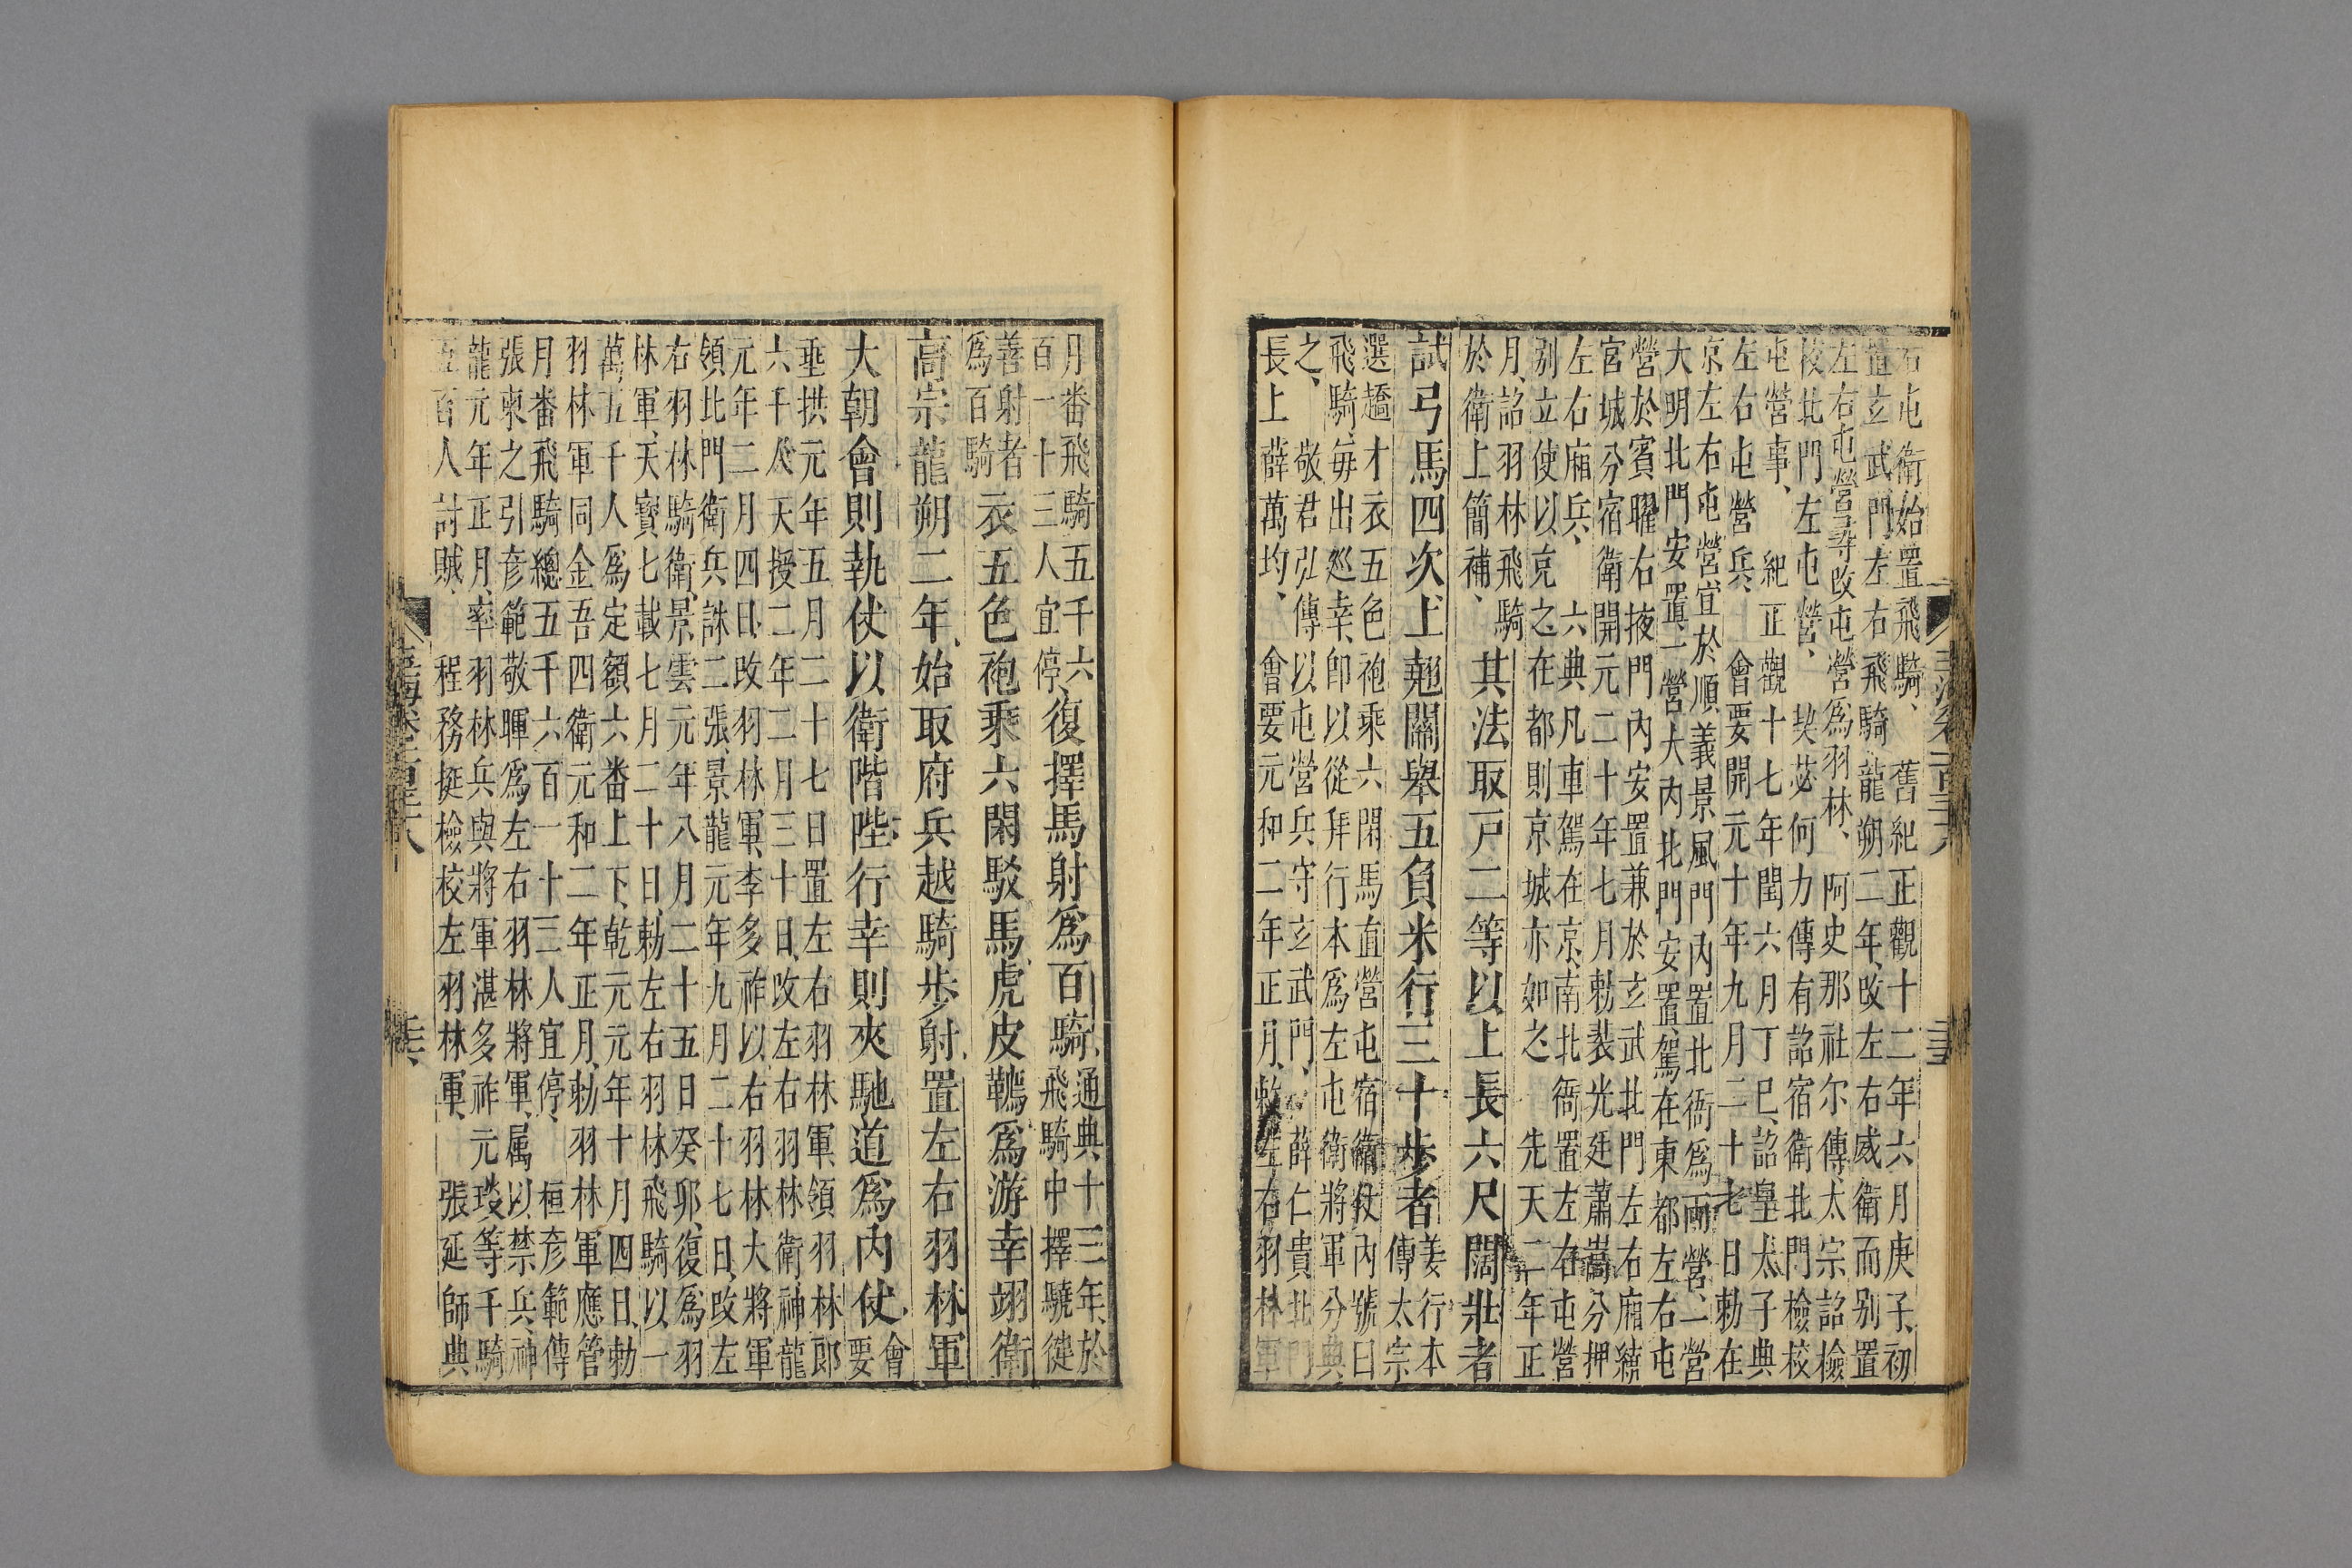 右屯衛始置飛騎、 舊紀正觀十二年六月庚子、初
置玄武門左右飛騎龍朔二年、改左右威衛而別置
左右屯營尋改屯營爲羽林、 阿史那社尔傳、太宗詔檢
校北門左屯營、 契苾何力傳有詔宿衛北門檢校
屯營事、 紀正觀十七年閏六月丁巳、詔皇太子典
左右屯營兵、 會要開元十年九月二十七日勅在
京左右屯營宜於順義景風門內置北衙爲兩營、一營
大明北門安置一營大內北門安置、駕在東都左右屯
營於賓曜右掖門內安置兼於玄武北門左右廂續
宮城分宿衛開元二十年七月勅裴光廷蕭嵩分押
左右廂兵、 六典凡車駕在京、南北衙置左右屯營
別立使以克之在都則京城亦如之 先天二年正
月、詔羽林飛騎
於衛上簡補、
其法取戸二等以上長六尺闊壯者
試弓馬四次上翹關舉五負米行三十步者
姜行本
傳太宗
選趫才衣五色袍乘六閑馬直營屯宿衛仗內號曰
飛騎、每出巡幸、卽以從拜行本爲左屯衛將軍分典
之、 敬君弘傳以屯營兵守玄武門、 薛仁貴北門
長上薛萬均、 會要元和二年正月、敕左右羽林軍
月番飛騎五千六
百一十三人宜停、
復擇馬射爲百騎、
通典、十三年、於
飛騎中擇驍徤
善射者
爲百騎
衣五色袍乘六閑駁馬、虎皮韉、爲游幸翊衛
高宗龍朔二年、始取府兵越騎步射、置左右羽林軍
大朝會則執仗以衛階陛、行幸則夾馳道爲內仗、
會
要
垂拱元年五月二十七日置左右羽林軍、領羽林郎
六千人天授二年二月三十日、改左右羽林衛、神龍
元年二月四日、改羽林軍、李多祚以右羽林大將軍
領北門衛兵誅二張、景龍元年九月二十七日、改左
右羽林騎衛、景雲元年八月二十五日癸卯、復爲羽
林軍、天寶七載七月二十日、勅左右羽林飛騎以一
萬五千人爲定額六番上下、乾元元年十月四日、勅
羽林軍同金吾四衛元和二年正月、勅羽林軍應管
月番飛騎總五千六百一十三人宜停、 桓彥範傳
張柬之引彥範敬暉爲左右羽林將軍、属以禁兵、神
龍元年正月、率羽林兵與將軍湛多祚元琰等千騎
五百人討賊、 程務挺檢校左羽林軍、 張延師典